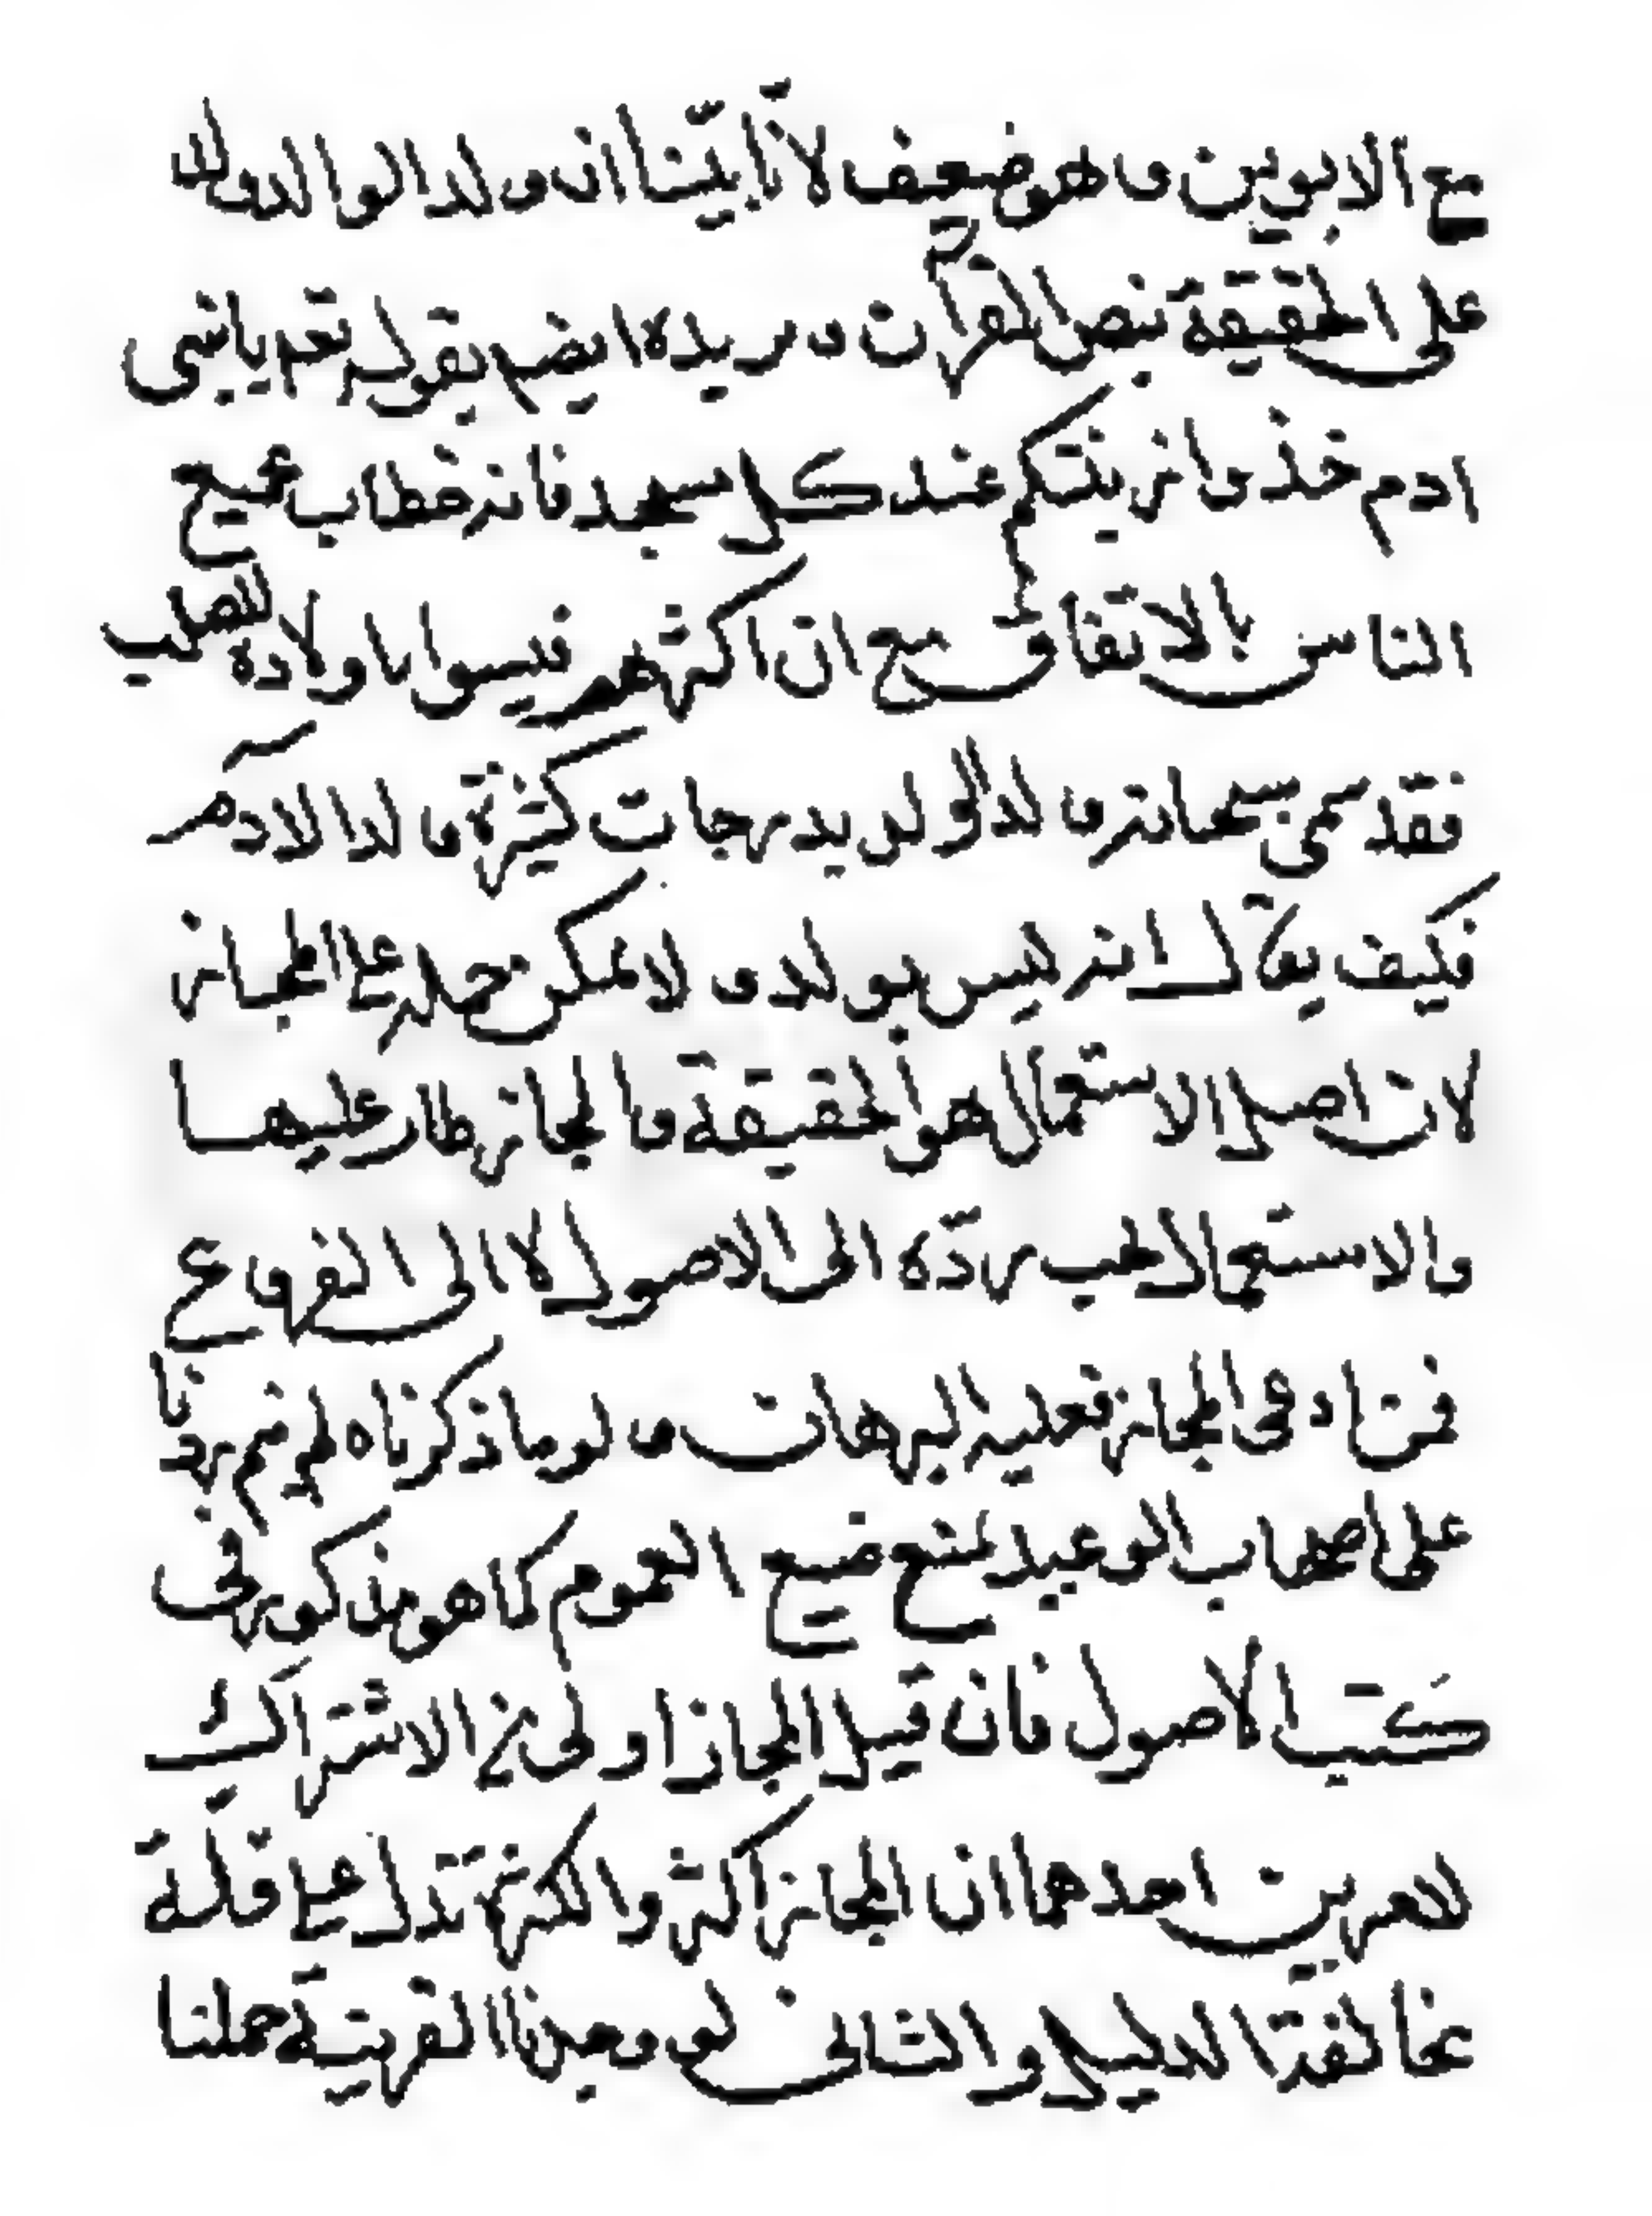 مع الابوين وهو ضعيف لأنّا بيّنا انه ولد الوالد ولد
على الحقيقة بنص القرآن ويريده ايضم بقوله تعم يا بنى
ادم خذوا زينتكم عند كل مسجد فانه خطاب جميع
الناس بالاتفاق مع ان اكثرهم ليسوا باولاده للصلب
فقد سمى سبحانه ولد الولد بدرجات كثيرة ولدا لآدم
فكيف يقال انه ليس بولد و لا يمكن حمله على المجاز
لان اصل الاستعمال هو الحقيقة والمجاز طار عليها
والاستعمال يجب ردّه الى الاصول لا الى الفروع
فمن اد فى المجاز فعليه البرهان ولو ما ذكرناه لم نتم ردنا
على اصحاب الوعيد بمنع صيغ العموم كما هو مذكور فى
كتب الاصول فان قيل المجاز اولى من الاشتراك
لامرين احدهما ان المجاز اكثر والكثرة تدل على قلة
مخالفة الدليل والثانى لو وجدنا القرينة حملنا